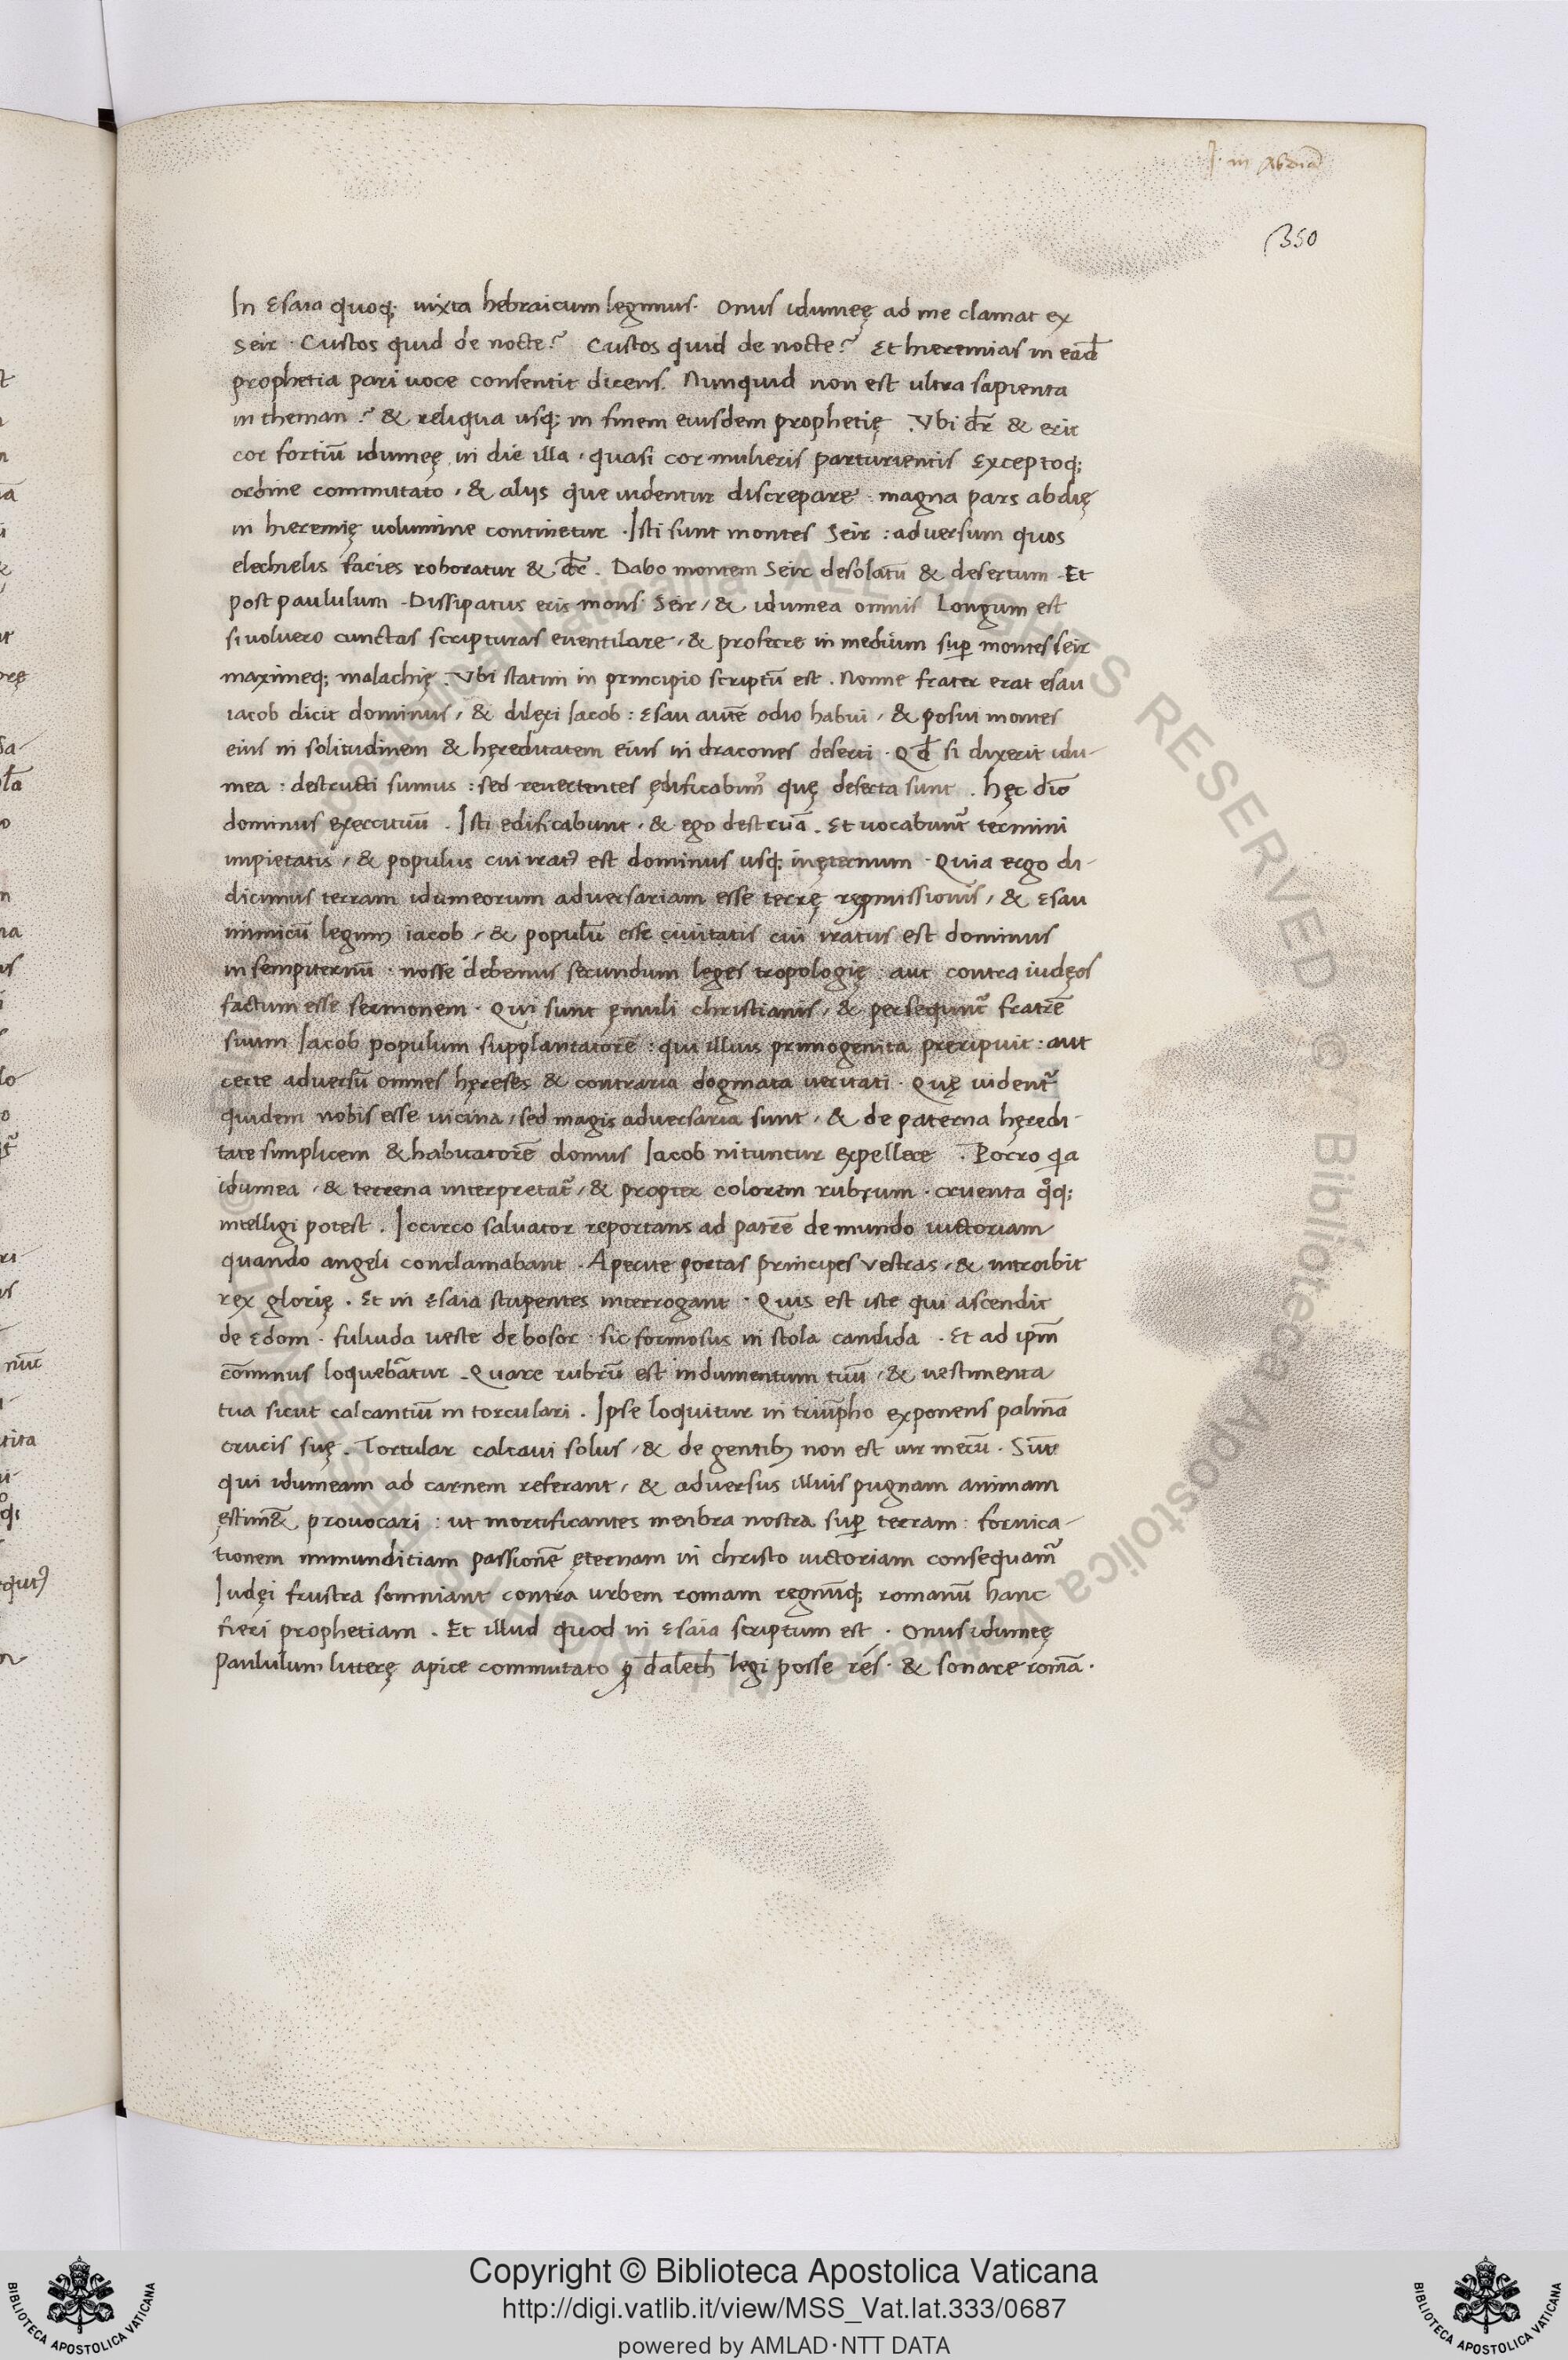 I. in Abdiā
350
In Esaia quoq; iuxta hebraicum legimus. Onus idumeę ad me clamat ex
Seir. Custos quid de nocte? Custos quid de nocte? Et hieremias in eađ
prophetia pari uoce consentit dicens. Nunquid non est ultra sapienta
in theman? & reliqua usq; in finem eiusdem prophetię. Vbi dr̄ & erit
cor fortiū idumeę in die illa, quasi cor mulieris parturientis Exceptoq;
ordine commutato, & alijs que uidentur discrepare: magna pars abdię
in hieremię uolumine continetur. Isti sunt montes Seir: adversum quos
elechielis facies roboratur & dr̄. Dabo montem Seir desolatū & desertum. Et
post paululum. Dissipatus eris mons Seir, & idumea omnis Longum est
si voluero cunctas scripturas eventilare, & proferre in medium suꝑ montes seir
maximeq; malachię. Vbi statim in principio scriptū est. Nonne frater erat esau
iacob dicit dominus, & dilexi Iacob: Esau autē odio habui, & posui montes
eius in solitudinem & hęreditatem eius in dracones deserti. Qđ si dixerit idu-
mea: destructi sumus: sed revertentes ędificabim᾿ quę deserta sunt. hęc dic̄
dominus exercituū. Isti edificabunt, & ego destruā. Et uocabunt᾿ termini
impietatis, & populus cui irat᾿ est dominus usq; in ęternum. Quia ergo di-
dicimus terram idumeorum adversariam esse terrę repmissionis, & Esau
inimicū legim᾿ iacob, & populū esse ciuitatis cui iratus est dominus
in sempiternū. nosse debemus secundum leges tropologię: aut contra iudęos
factum esse sermonem. Qui sunt ęmuli christianis, & persequunt᾿ fratrē
suum Iacob populum supplantatorē: qui illius primogenita preripuit: aut
certe adversū omnes hęreses & contraria dogmata ueritati. Quę uident᾿
quidem nobis esse uicina, sed magis adversaria sunt, & de paterna hęredi-
tate simplicem & habitatorē domus Iacob nituntur expellere. Porro qa
idumea, & terrena interpretat᾿, & propter colorem rubrum. cruenta qͦq;
intelligi potest. Iccirco salvator reportans ad patrē de mundo uictoriam
quando angeli conclamabant. Aperite portas principes vestras, & introibit
rex glorię. Et in Esaia stupentes interrogant. Quis est iste qui ascendit
de Edom. fuluida ueste de bosor. sic formosus in stola candida. Et ad ipm̄
cōminus loquebātur. Quare rubrū est indumentum tuū, & uestimenta
tua sicut calcantiū in torculari. Ipse loquitur in triūpho exponens palmā
crucis suę. Torcular calcaui solus, & de gentibꝫ non est uir mecū. Sūt
qui idumeam ad carnem referant, & adversus illius pugnam animam
ęstim& provocari: ut mortificantes menbra nostra suꝑ terram: fornica-
tionem immunditiam passionē ęternam in christo uictoriam consequam᾿
Iudęi frustra somniant contra urbem romam regnūq; romanū hanc
fieri prophetiam. Et illud quod in Esaia scriptum est. Onus idumeę
Paululum litterę apice commutato ꝓ daleth legi posse res. & sonare romā.
Copyright © Biblioteca Apostolica Vaticana
http://digi.vatlib.it/view/MSS_Vat.lat.333/0687
powered by AMLAD·NTT DATA